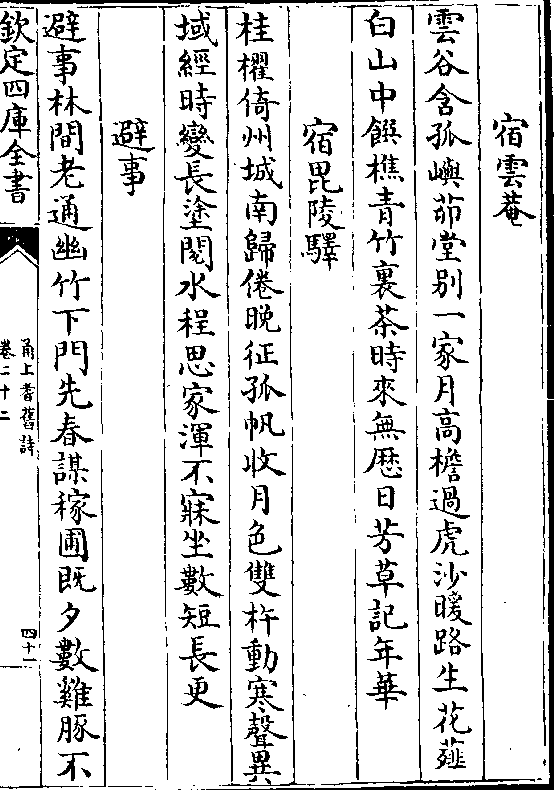 宿雲菴
雲谷含孤嶼茆堂别一家月高檐過虎沙暖路生花薤
臼山中饌樵青竹裏茶時來無厯日芳草記年華
宿毘陵驛
桂櫂倚州城南歸倦晚征孤帆收月色雙杵動寒聲異
域經時變長塗閲水程思家渾不寐坐數短長更
避事
避事林間老通幽竹下門先春謀稼圃既夕數雞豚不
欽定四庫全書
甬上耆舊詩
卷二十二
四十一